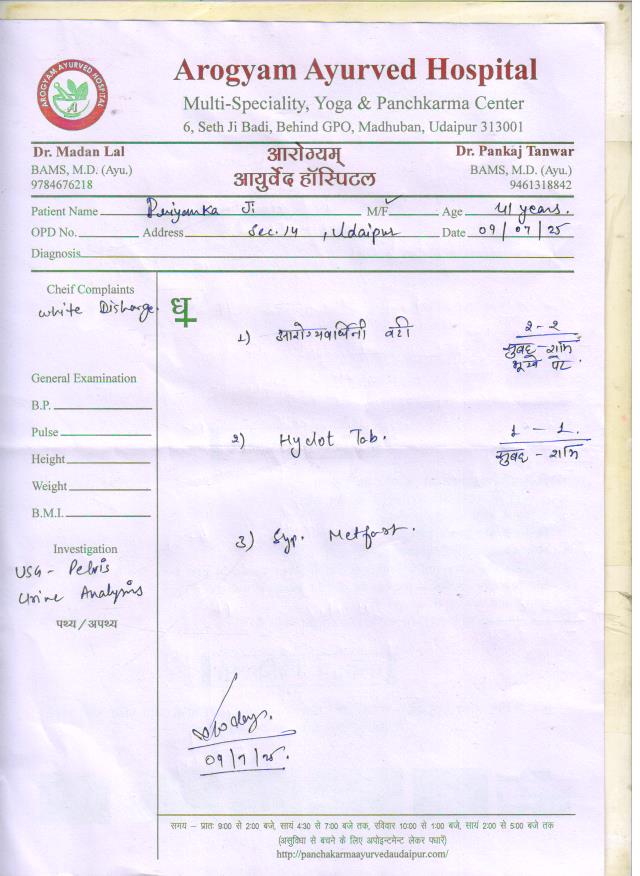 AROGYAM AYURVED HOSPITAL
Arogyam Ayurved Hospital
Multi-Speciality, Yoga & Panchkarma Center
6, Seth Ji Badi, Behind GPO, Madhuban, Udaipur 313001
Dr. Madan Lal
BAMS, M.D. (Ayu.)
9784676218
आरोग्यम्
आयुर्वेद हॉस्पिटल
Dr. Pankaj Tanwar
BAMS, M.D. (Ayu.)
9461318842
Patient Name Priyanka Ji M/F Age 41 years.
OPD No. Address Sec. 14, Udaipur Date 09/07/25
Diagnosis
Cheif Complaints
white Disharge.
General Examination
B.P.
Pulse
Height
Weight
B.M.I.
Investigation
USG - Pelvis
Urine Analysis
पथ्य / अपथ्य
1) आरोग्यवर्धिनी वटी २-२
सुबह - शाम
भूखे पेट
2) Hyclot Tab. 1 - 1
सुबह - शाम
3) Syp. Metfort.
09/7/25.
समय – प्रातः 9:00 से 2:00 बजे, सायं 4:30 से 7:00 बजे तक, रविवार 10:00 से 1:00 बजे, सायं 2:00 से 5:00 बजे तक
(असुविधा से बचने के लिए अपोइन्टमेन्ट लेकर पधारें)
http://panchakarmaayurvedaudaipur.com/